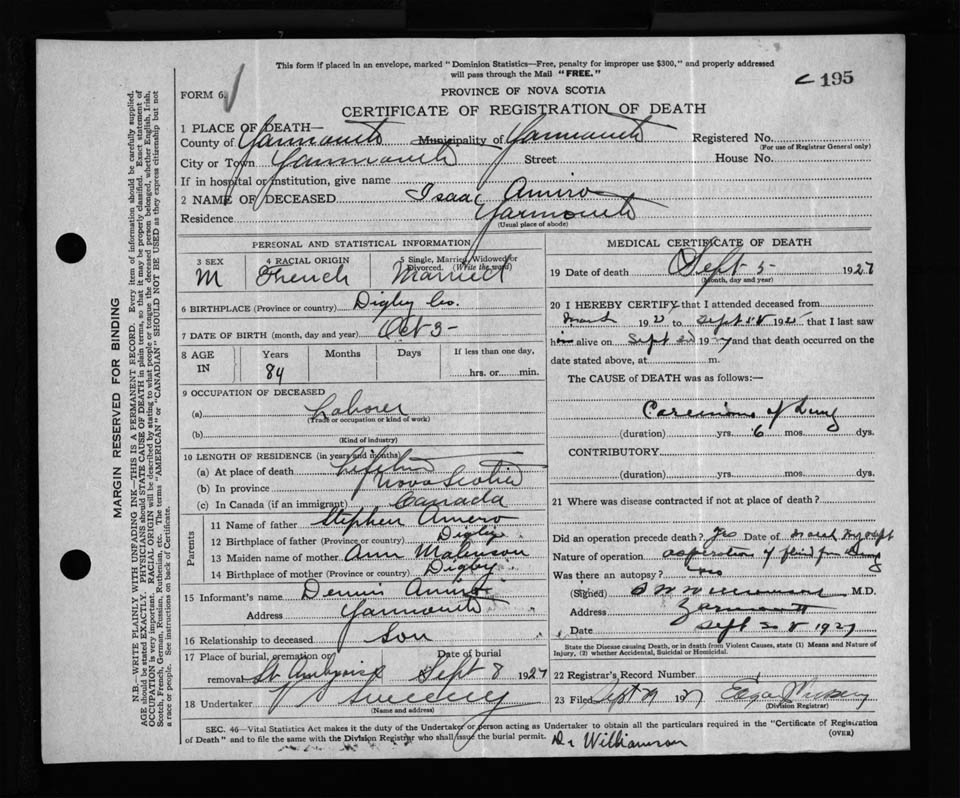 This form if placed in an envelope, marked "Dominion Statistics—Free, penalty for improper use $300," and properly addressed
will pass through the Mail "FREE."
195
FORM 6.
PROVINCE OF NOVA SCOTIA
CERTIFICATE OF REGISTRATION OF DEATH
1 PLACE OF DEATH—
County of Yarmouth Municipality of Yarmouth Registered No.
(For use of Registrar General only)
City or Town Yarmouth Street House No.
If in hospital or institution, give name
2 NAME OF DECEASED Isaac Amiro
Residence Yarmouth
(Usual place of abode)
PERSONAL AND STATISTICAL INFORMATION
3 SEX 4 RACIAL ORIGIN 5 Single, Married, Widowed or Divorced. (Write the word)
M French Married
6 BIRTHPLACE (Province or country) Digby Co.
7 DATE OF BIRTH (month, day and year) Oct 3-
8 AGE IN Years Months Days If less than one day,
84 hrs. or min.
9 OCCUPATION OF DECEASED
(a) Laborer
(Trade or occupation or kind of work)
(b)
(Kind of industry)
10 LENGTH OF RESIDENCE (in years and months)
(a) At place of death Lifetime
(b) In province Nova Scotia
(c) In Canada (if an immigrant) Canada
Parents
11 Name of father Stephen Amero
12 Birthplace of father (Province or country) Digby
13 Maiden name of mother Ann
14 Birthplace of mother (Province or country) Digby
15 Informant's name Dennis Amiro
Address Yarmouth
16 Relationship to deceased Son
17 Place of burial, cremation or removal Date of burial
St. Sept 8 1927
18 Undertaker V Sweeney
(Name and address)
MEDICAL CERTIFICATE OF DEATH
19 Date of death Sept 5- 1927
(Month, day and year)
20 I HEREBY CERTIFY that I attended deceased from
192 to Sept 192 that I last saw
him alive on Sept 192 and that death occurred on the
date stated above, at m.
The CAUSE of DEATH was as follows:—
of lung
(duration) yrs. 6 mos. dys.
CONTRIBUTORY
(duration) yrs. mos. dys.
21 Where was disease contracted if not at place of death?
Did an operation precede death? Yes Date of
Nature of operation aspiration of fluid from lung
Was there an autopsy?
(Signed) M.D.
Address Yarmouth
Date Sept 1927
State the Disease causing Death, or in death from Violent Causes, state (1) Means and Nature of
Injury, (2) whether Accidental, Suicidal or Homicidal.
22 Registrar's Record Number
23 Filed Sept 192
(Division Registrar)
SEC. 46—Vital Statistics Act makes it the duty of the Undertaker or person acting as Undertaker to obtain all the particulars required in the "Certificate of Registration
of Death" and to file the same with the Division Registrar who shall issue the burial permit. (OVER)
Dr Williamson
MARGIN RESERVED FOR BINDING
N.B.—WRITE PLAINLY WITH UNFADING INK—THIS IS A PERMANENT RECORD. Every item of information should be carefully supplied.
AGE should be stated EXACTLY. PHYSICIANS should STATE CAUSE OF DEATH in plain terms, so that it may be properly classified. Exact statement of
OCCUPATION is very important. RACIAL ORIGIN will be described by stating to what people or tongue the deceased person belonged, whether English, Irish,
Scotch, French, German, Russian, Ruthenian, etc. The terms "AMERICAN" or "CANADIAN" SHOULD NOT BE USED as they express citizenship but not
a race or people. See instructions on back of Certificate.